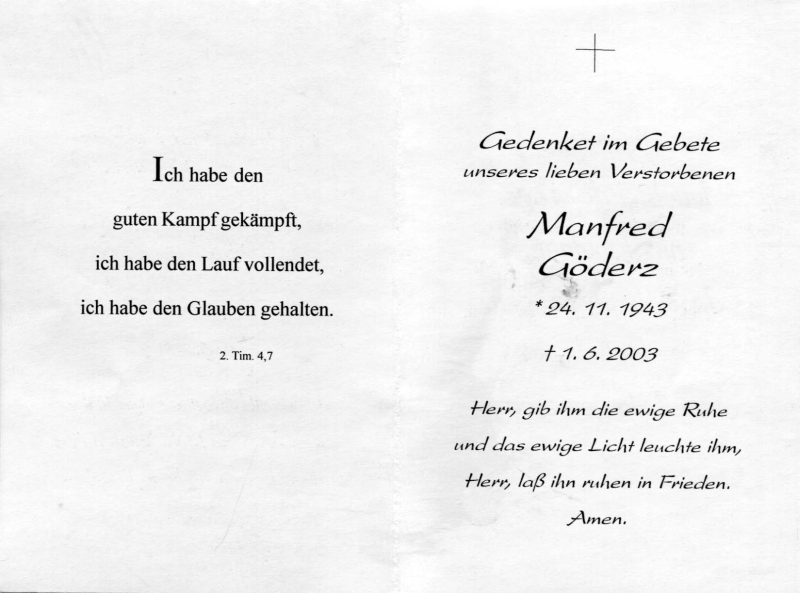 Ich habe den
guten Kampf gekämpft,
ich habe den Lauf vollendet,
ich habe den Glauben gehalten.
2. Tim. 4,7
Gedenket im Gebete
unseres lieben Verstorbenen
Manfred
Göderz
* 24. 11. 1943
† 1. 6. 2003
Herr, gib ihm die ewige Ruhe
und das ewige Licht leuchte ihm,
Herr, laß ihn ruhen in Frieden.
Amen.